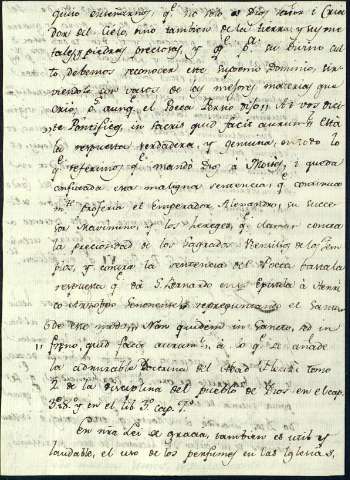 quiso enseñarnos, qe. no solo es Dios señor i Cria-
dor del Cielo, sino tambien de la tierra: y sus me-
tales, y piedras preciosas, y qe. pa. su Divino cul-
to, debemos reconocer este supremo Dominio, sir-
viendole con vasos de las mejores materias que
crió; aunqe. el Poeta Persio dijo: At vos dici-
te Pontifices, in sacris quid facit aurum? Està
la respuesta verdadera, y genuina, en todo lo
qe. referimos qe. mandò Dios à Moises, i queda
confutada esta maligna sentencia, qe. continua
mte. proferia el emperador Alexandro, su succe-
sor Maximino, y los hereges, qe. claman contra
la preciosidad de los sagrados Vtensilios de los Tem-
plos, y contra la sentencia del Poeta basta la
respuesta qe. dà S. Bernardo en su Epistola à Henri
co Arzobispo Senonense, repreguntando el Santo
de este modo: Non quidem in Sancto, sed in
fręno, quid facit aurum? à lo qe. se añade
la admirable Doctrina del Abad Fleuri tomo
2. de la disciplina del pueblo de Dios en el cap.
y en el lib. cap. 7.
En nra Lei de gracia, tambien es util y
laudable, el uso de los perfumes en las Iglesias,